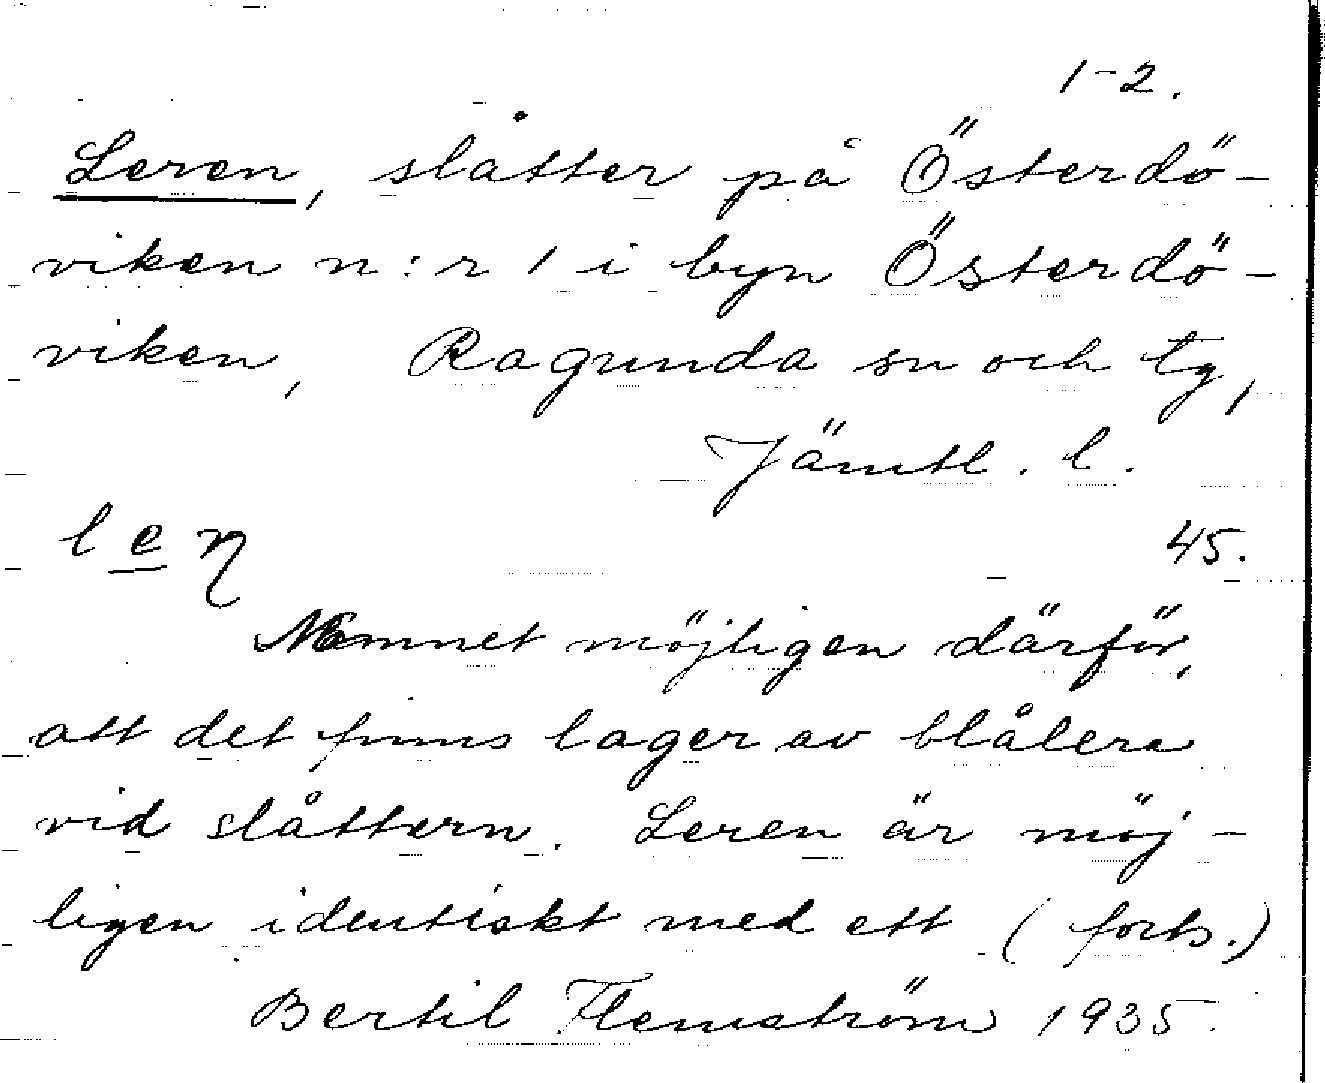 1-2.
Leren, slåtter på Österdö-
viken n:r 1 i byn Österdö-
viken, Ragunda sn och tg,
Jämtl. l.
45.
Namnet möjligen därför,
att det finns lager av blålera
vid slåttern. Leren är möj-
ligen identiskt med ett (forts.)
Bertil Flemström 1935.